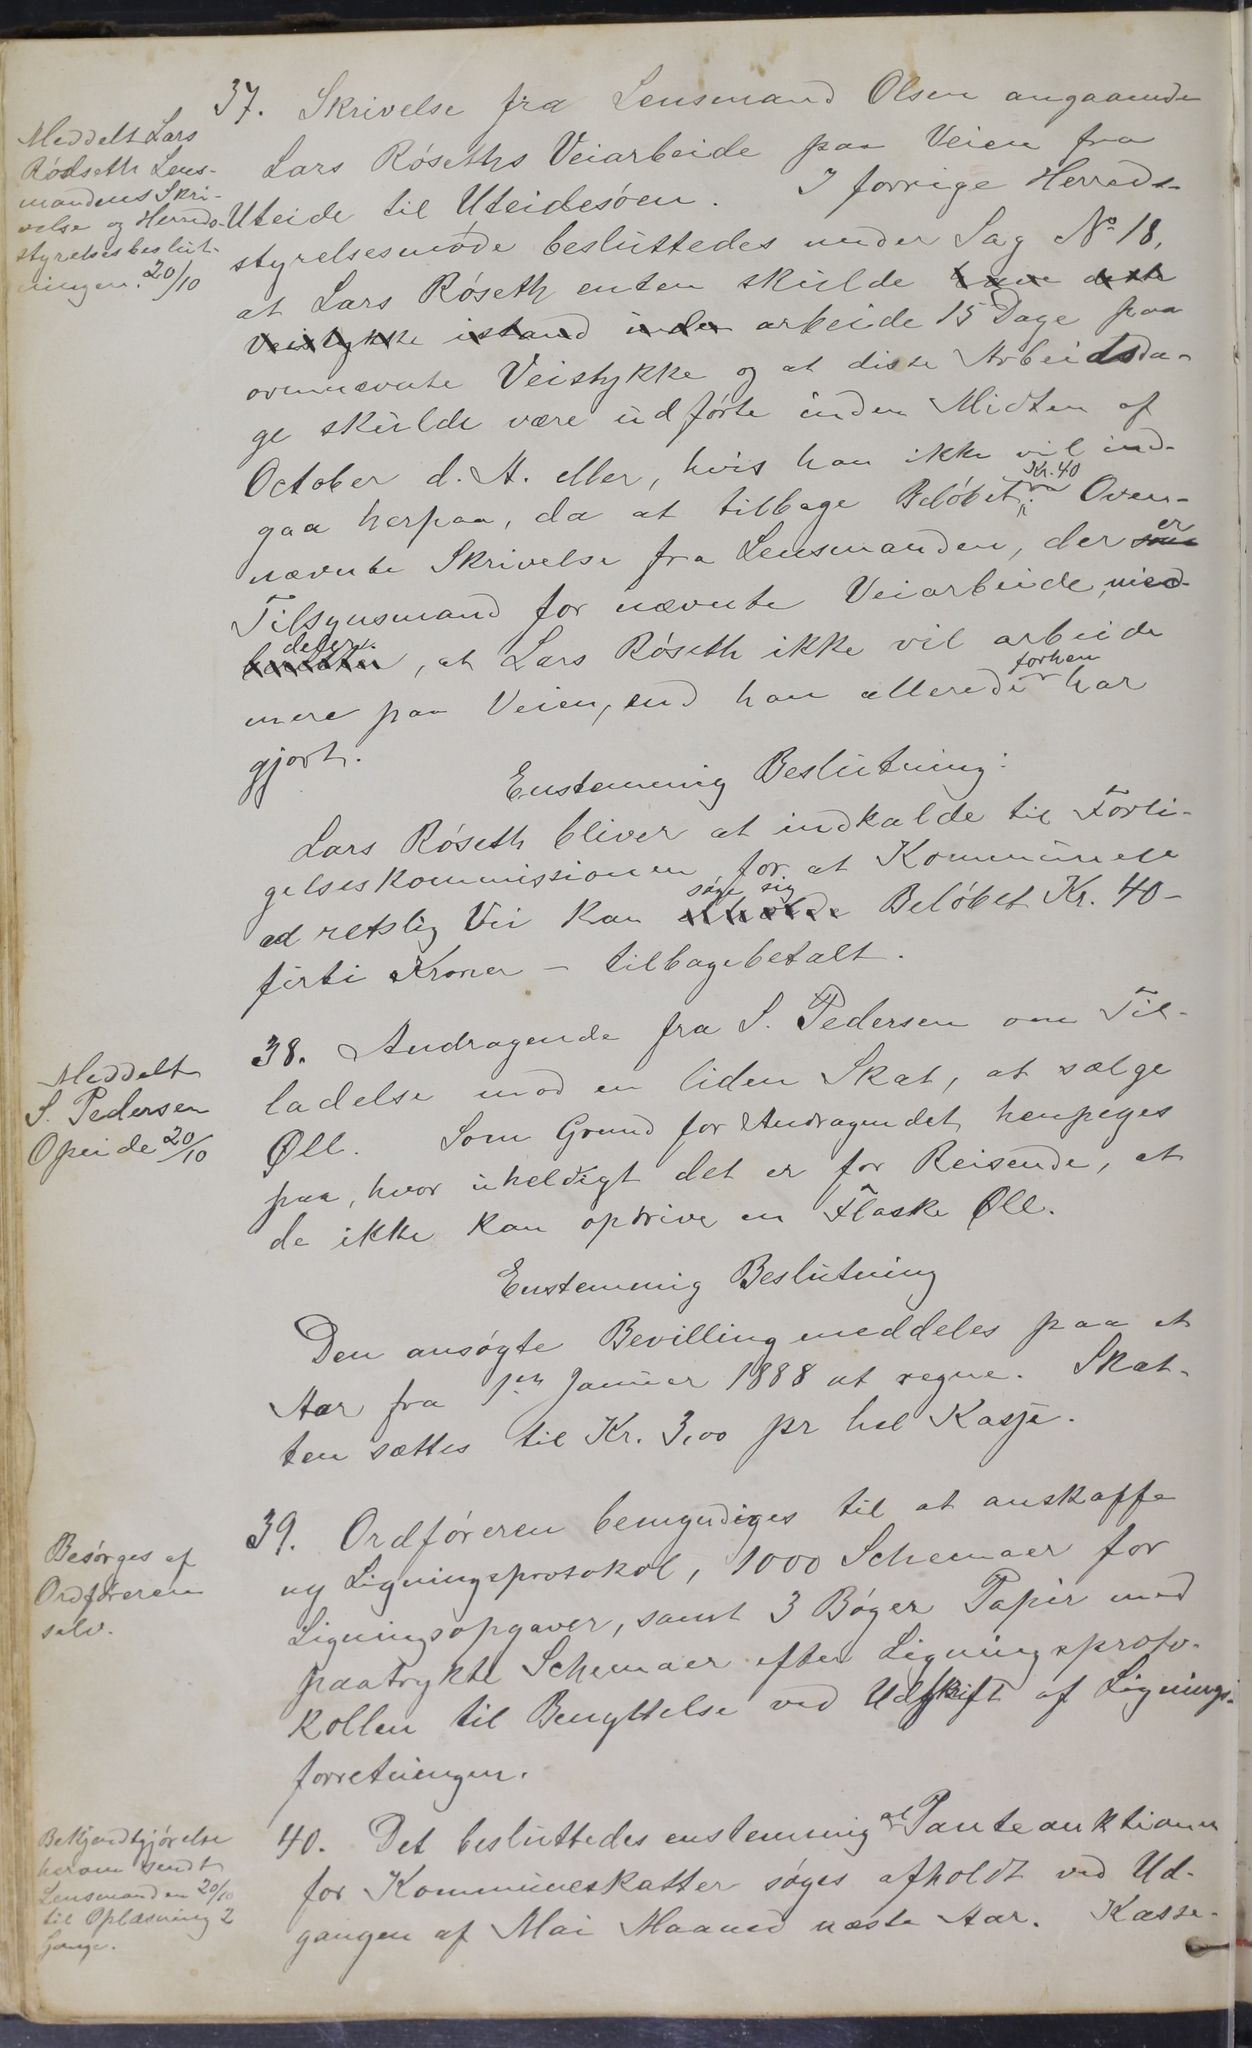 37. Skrivelse fra Lensmand Olsen angaaende
Lars Röseths Veiarbeide paa Veien fra
Uteide til Uteidesöen. I forrige Herreds-
styrelsesmöde besluttedes under Sag No 18,
at Lars Röseth enten skulde
arbeide 15 Dage paa
ovennævnte Veistykke og at disse Arbeidsda-
ge skulde være udförte inden Midten af
October d. A. eller, hvis han ikke vil ind-
gaa herpaa, da at tilbage Belöbet Kr. 40. Oven-
nævnte Skrivelse fra Lensmanden, der er
Tilsynsmand for nævnte Veiarbeide, med-
deler, at Lars Röseth ikke vil arbeide
mere paa Veien, end han allerede forhen har
gjort.
Enstemmig Beslutning:
Lars Röseth bliver at indkalde til Forli-
gelseskommissionen for at Kommunen
ad retslig Vei kan söge sig Belöbet Kr. 40 -
firti Kroner - tilbagebetalt.
38. Andragende fra S. Pedersen om Til-
ladelse mod en liden Skat, at sælge
Øll. Som Grund for Andragendet henpeges
paa, hvor uheldigt det er for Reisende, at
de ikke kan opdrive en Flaske Øll.
Enstemmig Beslutning
Den ansögte Bevilling meddeles paa et
Aar fra 1ste Januar 1888 at regne. Skat-
ten sættes til Kr. 3,00 pr hel Kasse.
39. Ordföreren bemyndiges til at anskaffe
ny Ligningsprotokol, 1000 Schemaer for
Ligningsopgaver, samt 3 Böger Papir med
paatrykte Schemaer efter Ligningsproto-
kollen til Benyttelse ved Udskrift af Lignings-
forretningen.
40. Det besluttedes enstemmig at Panteauktionen
for Kommuneskatter söges afholdt ved Ud-
gangen af Mai Maaned næste Aar. Kasse-
Meddelt Lars
Rödseth Lens-
mandens Skri-
velse og Herreds-
styrelsesbeslut-
ningen. 20/10
Meddelt
S. Pedersen
Opeide 20/10
Besörges af
Ordföreren
selv.
Bekjendtgjörelse
herom sendt
Lensmanden 20/10
til Oplæsning 2
Gange.